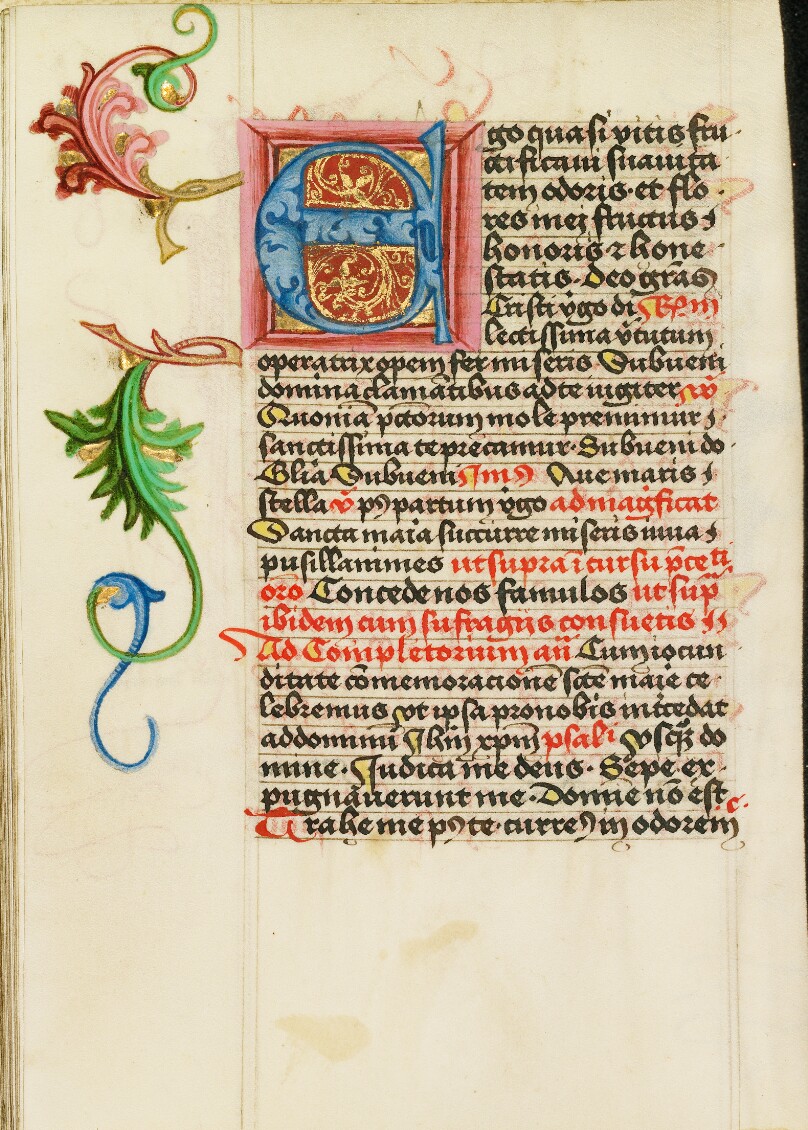 Ego quasi vitis fru
ctificaui suauita
tem odoris · et flo
res mei fructus
honoris ⁊ hone
statis · Deo gr̄as
Cristi v̓go di
lectissima v̓tutum
operatrix opem fer miseris Subueni
domina clamātibus ad te iugiter v̄
Quoniā pctōrum mole premimur
sanctissima te precamur · Subueni do
Glīa Subueni Im̄9 Aue maris
stella v̄ p9 partum v̓go ad mag̅ficat
Sancta maīa succurre miseris iuua
pusillanimes ut supra ī cursu
orō Concede nos famulos ut sup̄
ibidem cum sufragiis consuetis
Ad Completorium an̄ Cum iocun
ditate cōmemoracionē sctē maīe ce
lebremus vt ipsa pro nobis int̓cedat
ad dominū Ihm̄ xpm̄ psal̄i Vsq̄ꝫ do
mine · Iudica me deus · Sepe ex
pugnauerunt me · Domīe nō est c̄ ·
Trahe me p9 te · curre9 in odorem